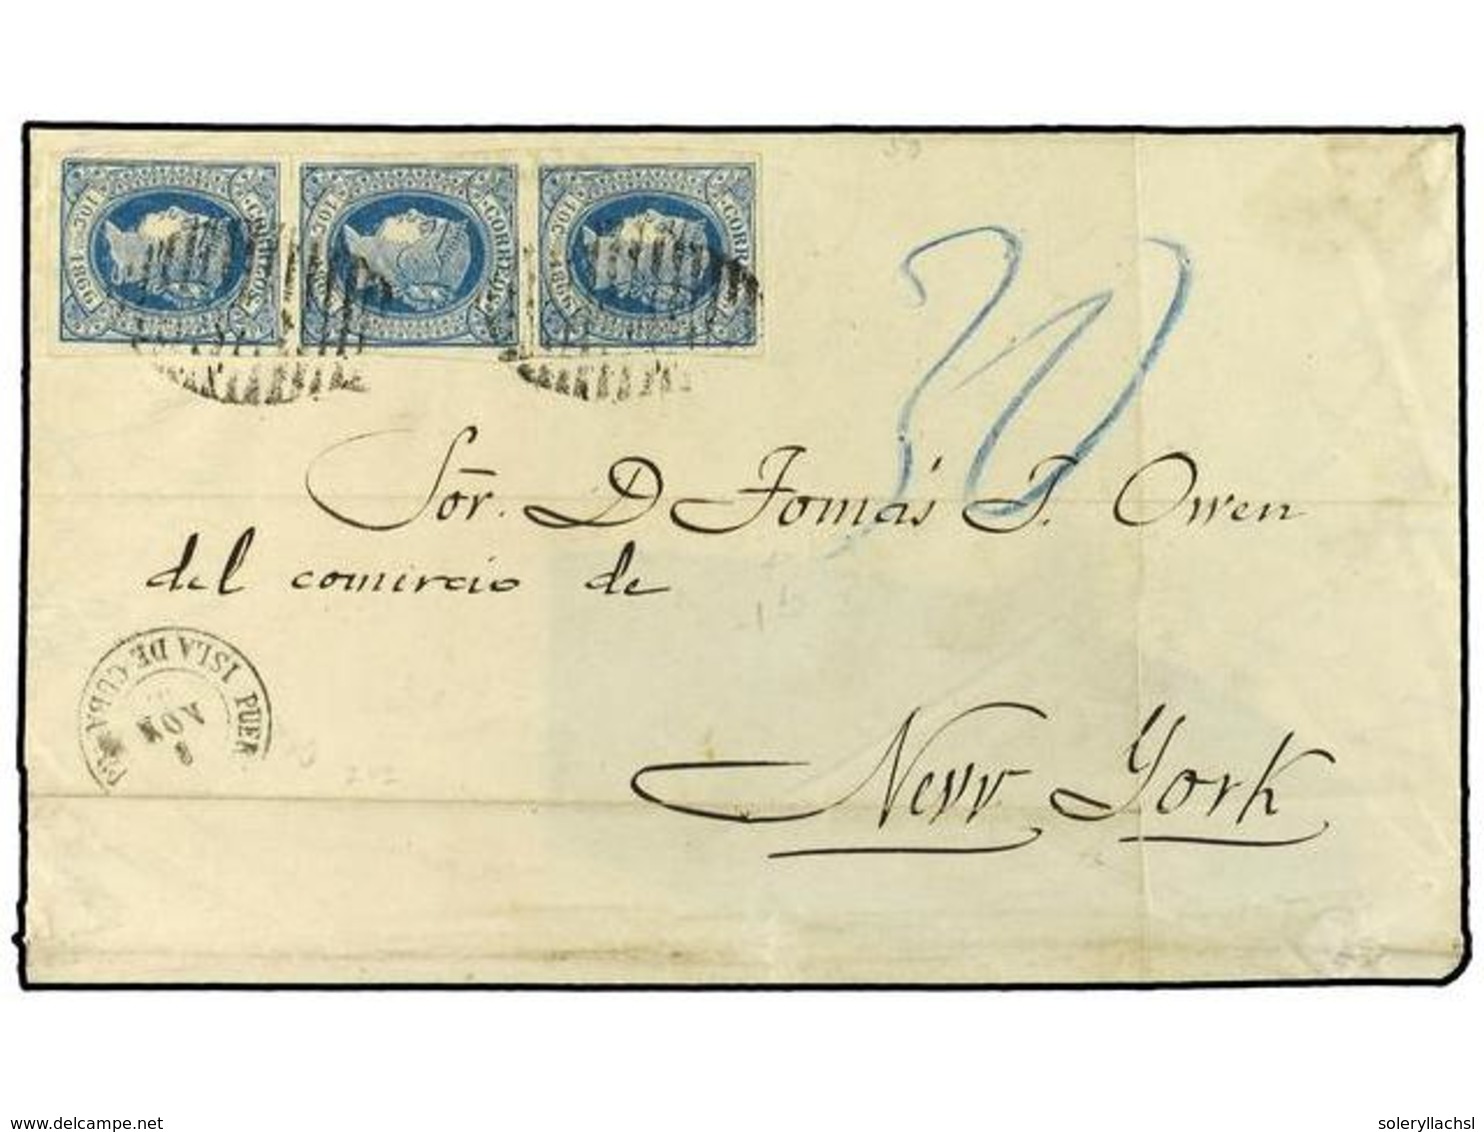 CORREOS
10 C.
1866
CORREOS
10 C.
CORREOS
10 C.
1866
30
Sōr. D Tomás T. Owen
del comircio de
New York
ISLA DE CUBA
PUER
NOV
8
delcampe.net
soleryllachsl